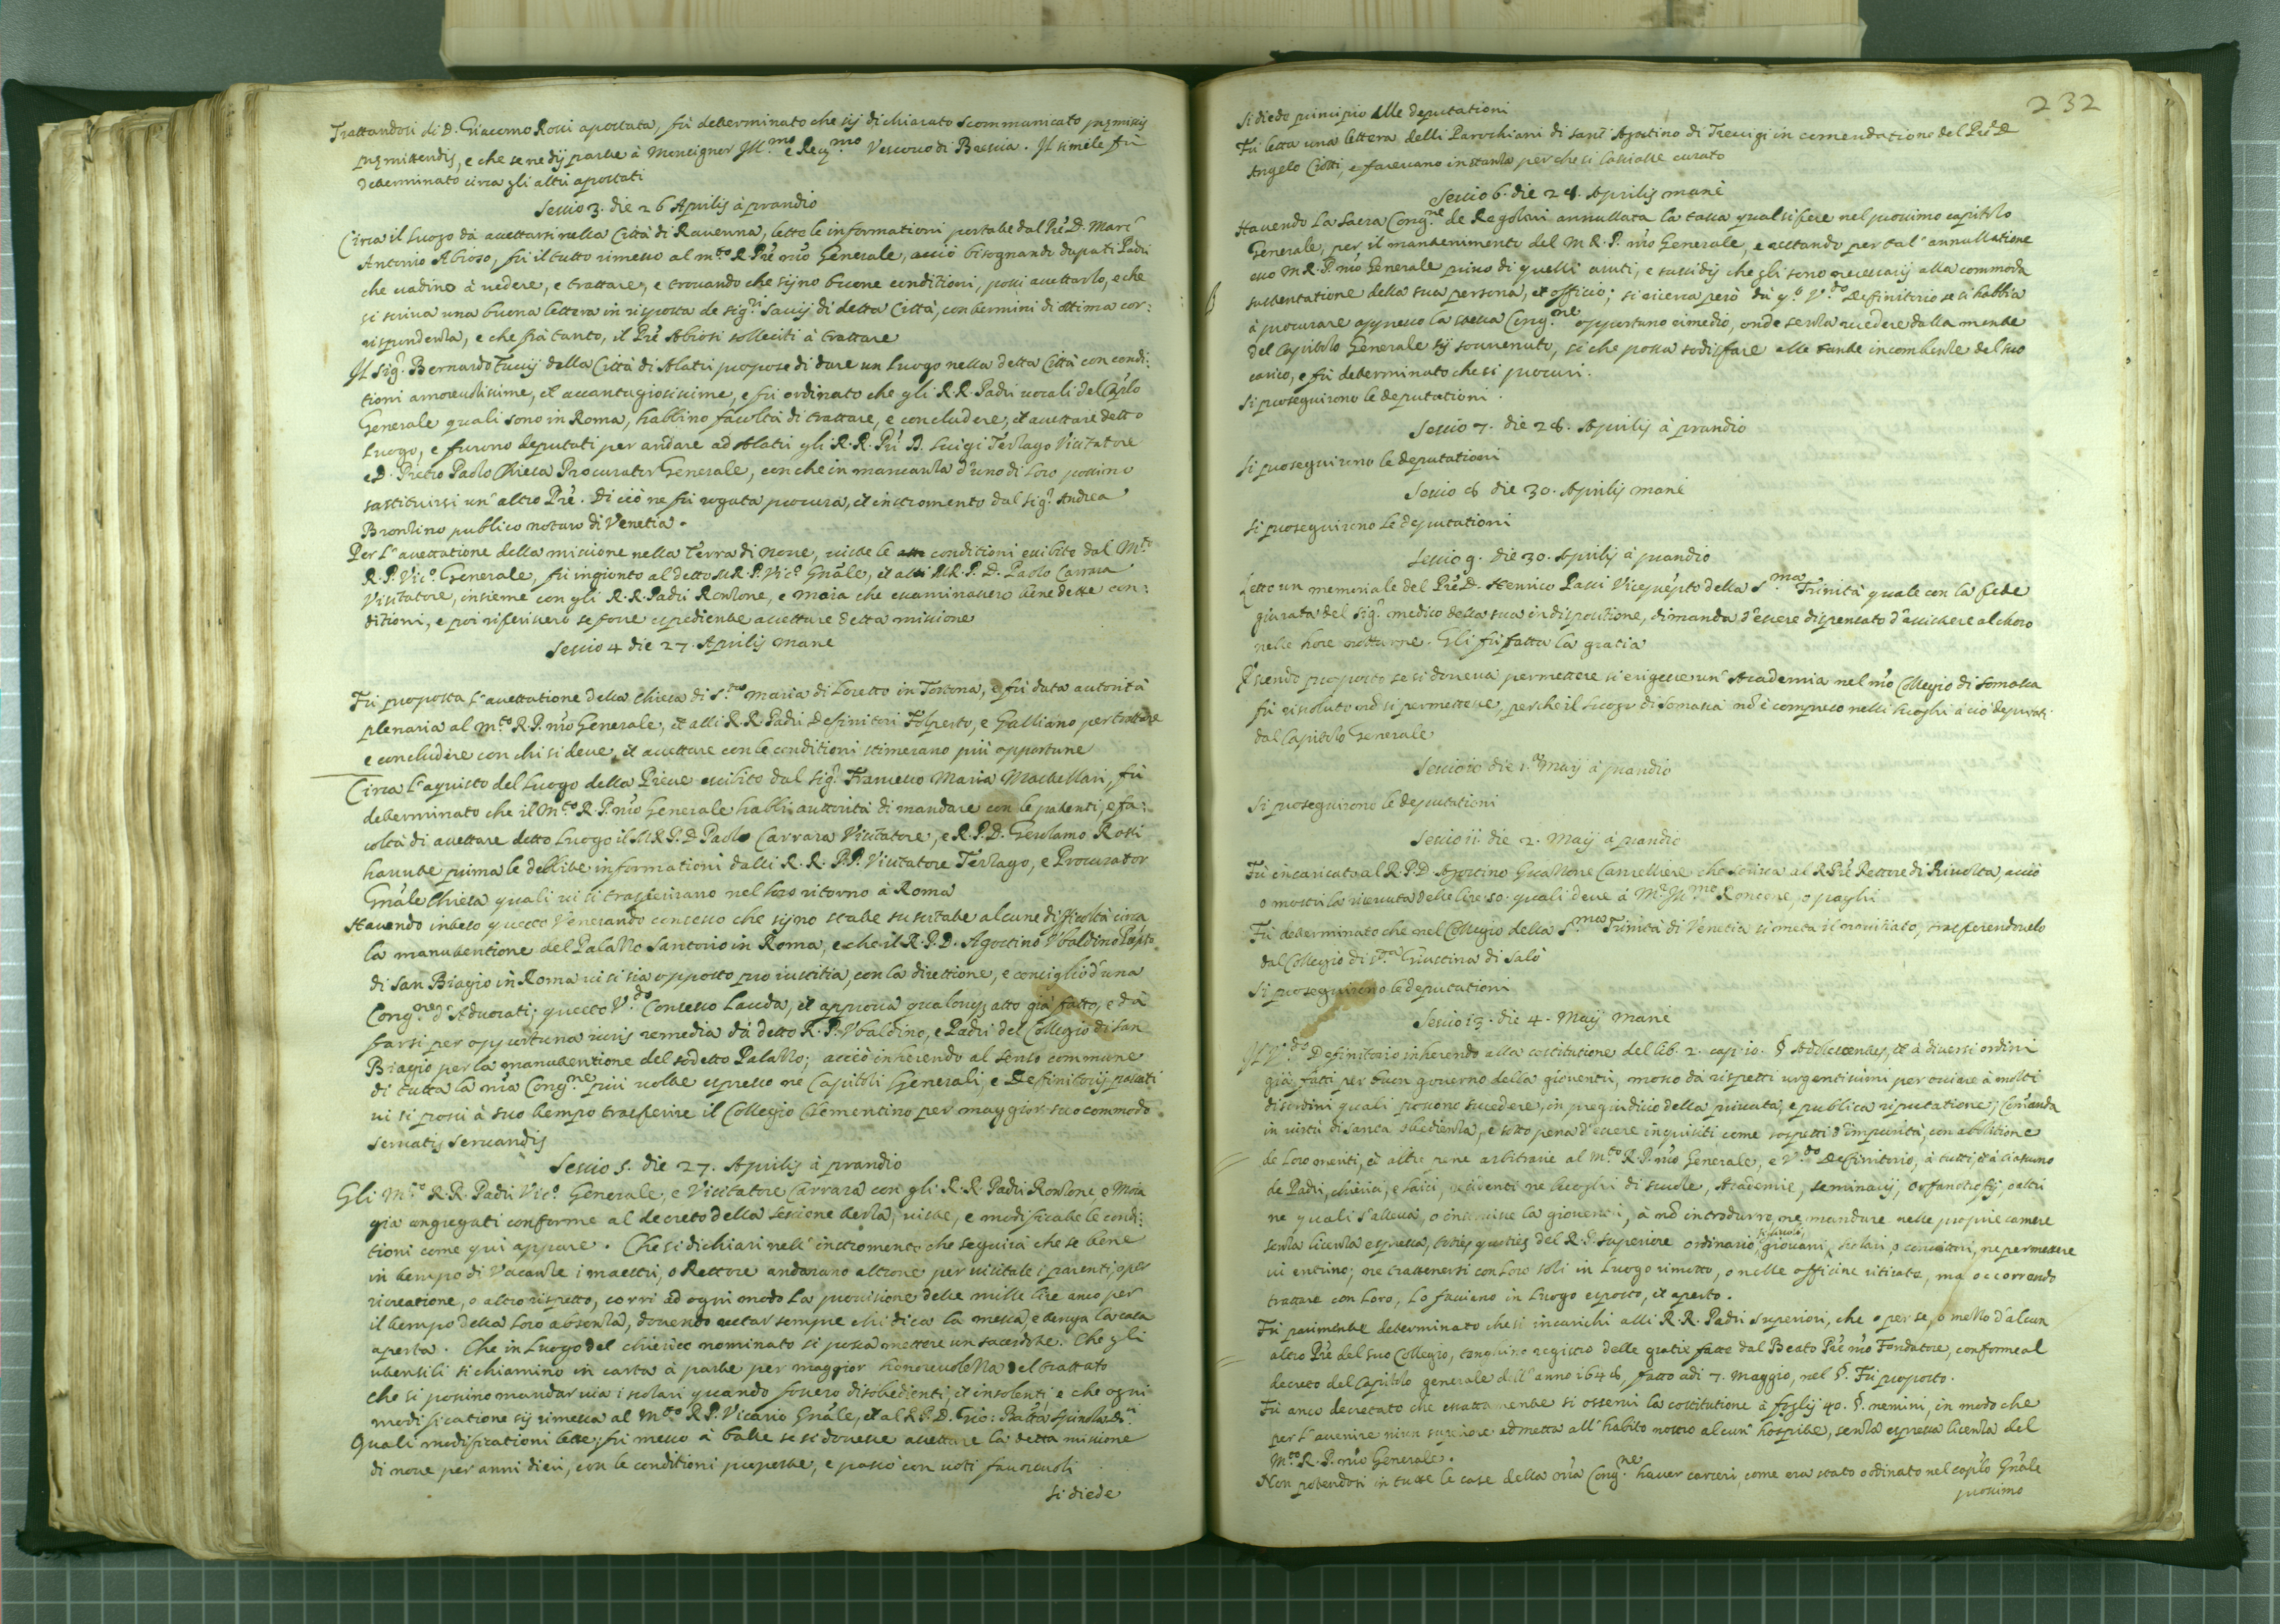 Trattandosi di D. Giacomo Rossi apostata, fù determinato che sij dichiarato scommunicato pręmissis
pręmittendis, e che se ne dij parte à Monsignor Ill.mo e Reu.mo Vescouo di Brescia. Il simile fù
determinato circa gli altri apostati
Sessio 3. die 26 Aprilis à prandio
Circa il luogo da accettarsi nella Città di Rauenna, lette le informationi portate dal Prē D. Marc'
Antonio Abioso, fù il tutto rimesso al m.to R. Prē nr̄o Generale, acciò bisognando deputi Padri
che uadino à uedere, e trattare, e trouando che sijno buone conditioni, possi accettarlo, e che
si scriua una buona lettera in risposta de sig.ri Sauij di detta Città, con termini di ottima cor:
rispondenza, e che frà tanto, il Prē Abiosi solleciti à trattare
Il Sig.r Bernardo Tucij della Città di Alatri propose di dare un luogo nella detta Città con condi:
tioni amoreuolissime, et auantagiosissime, e fù ordinato che gli R.R. Padri uocali del Cap̄lo
Generale quali sono in Roma, habbino facoltà di trattare, e concludere, et accettare detto
luogo, e furono deputati per andare ad Alatri gli R.R. Pri D. Luigi Terzago Visitatore
e D. Pietro Paolo Chiesa Procurator Generale, con che in mancanza d'uno di loro possino
sostituirsi un' altro Prē. Di ciò ne fù rogata procura, et instromento dal Sig.r Andrea
Bronzino publico notaro di Venetia.
Per l'accettatione della missione nella terra di Noue, uiste le conditioni esibite dal M.to
R. P. Vic.o Generale, fù ingionto al detto M.R.P. Vic.o Gn̄ale, et al M.R.P. D. Paolo Carrara
Visitatore, insieme con gli R.R. Padri Ronzone, e Moia che essaminassero bene dette con:
ditioni, e poi riferissero se fosse espediente accettare detta missione
Sessio 4 die 27. Aprilis mane
Fù proposta l'accettatione della Chiesa di S.ta Maria di Loretto in Tortona, e fù data autorità
plenaria al m.to R.P. nr̄o Generale, et alli R.R. Padri Definitori Folperto, e Galliano per trattare
e concludere con chi si deue, et accettare con le conditioni stimerano più opportune
Circa l'aquisto del luogo della Pieue esibito dal Sig.r Francesco Maria Machellari, fù
determinato che il M.to R.P. nr̄o Generale habbi auttorità di mandare con le patenti, e fa:
coltà di accettare detto luogo il M.R.P.D. Paolo Carrara Visitatore, e R.P.D. Gerolamo Rossi
hauute prima le debbite informationi dalli R.R. P.P. Visitatore Terzago, e Procurator
Gn̄ale Chiesa quali ui si trasferirano nel loro ritorno à Roma
Hauendo inteso questo Venerando consesso che sijno state suscitate alcune difficoltà circa
la manutentione del Palazzo Santorio in Roma, e che il R.P.D. Agostino Vbaldino Prep̄sto
di San Biagio in Roma ui si sia opposto pro iustitia, con la direttione, e consiglio d'una
Cong.ne d'Aduocati; questo V.do Consesso lauda, et approua qualonq̧ atto già fatto, e dà
farsi per opportuna iuris remedia dà detto R.P. Vbaldino, e Padri del Collegio di San
Biagio per la manutentione del sodetto Palazzo; acciò inherendo al senso commune
di tutta la nr̄a Cong.ne più uolte espresso ne Capitoli Generali, e Definitorij passati
ui si possi à suo tempo trasferire il Collegio Clementino per maggior suo commodo
seruatis seruandis
Sessio 5. die 27. Aprilis à prandio
Gli M.to R.R. Padri Vic.o Generale, e Visitatore Carrara con gli R.R. Padri Ronzone, e Moia
già congregati conforme al decreto della sessione terza, uiste, e modificate le condi:
tioni come qui appare. Che si dichiari nell' instromento che seguirà che se bene
in tempo di Vacanze i maestri, o Rettore andarano altroue per uisitare i parenti, o per
ricreatione, o altro rispetto, corri ad ogni modo la prouisione delle mille lire anco per
il tempo della loro absenza, douendo restar sempre chi dica la messa, e tenga la casa
aperta. Che in luogo del chierico nominato si possa mettere un sacerdote. Che gli
utensili si chiamino in carta à parte per maggior honoreuolezza del trattato
Che si possino mandar uia i scolari quando fossero disobedienti, et insolenti, e che ogni
modificatione sij rimessa al M.to R.P. Vicario Gn̄ale, et al R.P.D. Gio: Batt̄a Spinola
Quali modificationi lette, fù messo à balle se si douesse accettare la detta missione
di noue per anni dieci, con le conditioni proposte, e passò con uoti fauoreuoli
Si diede
232
Si diede principio alle deputationi
Fù letta una lettera delli Parochiani di sant' Agostino di Treuigi in comendatione del Prē D.
Angelo Ciotti, e faceuano instanza perche si lasciasse curato
Sessio 6. die 28. Aprilis mane
Hauendo la Sacra Cong.ne de Regolari annullata la tassa qual si fece nel prossimo capitolo
Generale, per il mantenimento del M.R.P. nr̄o Generale, e restando per tal' annullatione
esso M.R.P. nr̄o Generale priuo di quelli aiuti, e sussidij che gli sono necessarij alla commoda
sustentatione della sua persona, et officio; si ricerca però dà q.to V.do Definitorio se si habbia
à procurare appresso la stessa Cong.ne opportuno rimedio, onde senza recedere dalla mente
del Capitolo Generale sij souuenuto, si che possa sodisfare alle tante incombenze del suo
carico, e fù determinato che si procuri.
Si proseguirono le deputationi.
Sessio 7. die 28. Aprilis à prandio
Si proseguirono le deputationi
Sessio 8 die 30. Aprilis mane
Si proseguirono le deputationi
Sessio 9. die 30. Aprilis à prandio
Letto un memoriale del Prē D. Henrico Passi Viceprep̄sto della S.ma Trinità quale con la fede
giurata del Sig.r medico della sua indispositione, dimanda d'essere dispensato d'assistere al choro
nelle hore notturne. Gli fù fatta la gratia
Essendo proposto se si doueua permettere si erigesse un' Academia nel nr̄o Collegio di Somasca
fù risoluto nō si permettesse, perche il luogo di Somasca nō è compreso nelli luoghi à ciò deputati
dal Capitolo Generale
Sessio 10 die 1.a Maij à prandio
Si proseguirono le deputationi
Sessio 11. die 2. Maij à prandio
Fù incaricato al R.P.D. Agostino Guazzone Cancelliere che scriua al R.Prē Rettore di Riuolta, acciò
o mostri la riceuuta delle lire 50. quali deue à M.r Ill.mo Roncone, o paghi
Fù determinato che nel Collegio della S.ma Trinità di Venetia si metta il nouitiato, trasferendouelo
dal Collegio di S.ta Giustina di Salò
Si proseguirono le deputationi
Sessio 13. die 4. Maij mane
Il V.do Definitorio inherendo alla costitutione del lib. 2. cap. 10. §. Adolescentes, et à diuersi ordini
già fatti per buon gouerno della giouentù, mosso dà rispetti urgentissimi per ouiare à molti
disordini quali possono succedere, in pregiudicio della priuata, e publica riputatione; Com̄anda
in uirtù di santa obedienza, e sotto pena d'essere inquisiti come sospetti d'impurità, con abolitione
de loro meriti, et altre pene arbitrarie al m.to R.P. nr̄o Generale, e V.do Definitorio, à tutti, et à ciascuno
de Padri, chierici, e laici, residenti ne luoghi di scuole, Academie, seminarij, Orfanotrofij, o altri
ne quali s'alleua, o instruisce la giouentù, à nō introdurre, ne mandare nelle proprie camere
senza licenza espressa, toties quoties del R.P. Superiore ordinario, giouani, scolari, o conuittori, ne permettere
ui entrino; ne trattenersi con loro soli in luogo rimotto, o nelle officine ritirate, ma occorrendo
trattare con loro, lo facciano in luogo esposto, et aperto.
Fù parimente determinato che si incarichi alli R.R. Padri Superiori, che o per se, o mezzo d'alcun
altro Prē del suo Collegio, tenghino registro delle gratie fatte dal Beato Prē nr̄o Fondatore, conforme al
decreto del Capitolo generale dell' anno 1648, fatto adi 7. Maggio, nel §. Fù proposto.
Fù anco decretato che essattamente si osserui la costitutione à foglij 40. §. nemini, in modo che
per l'auenire niun superiore admetta all' habito nostro alcun' hospite, senza espressa licenza del
M.to R.P. nr̄o Generale.
Non potendosi in tutte le case della nr̄a Cong.ne hauer carceri, come era stato ordinato nel cap̄lo Gn̄ale
prossimo